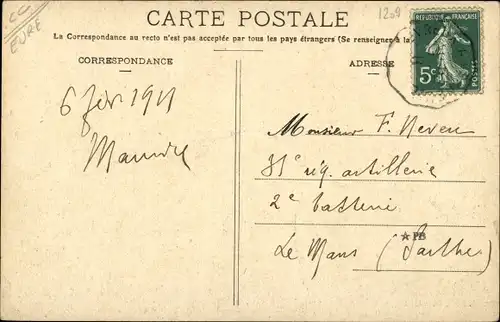 CC
EURE
1209
CARTE POSTALE
La Correspondance au recto n'est pas acceptée par tous les pays étrangers (Se renseigner à la
CORRESPONDANCE
ADRESSE
RÉPUBLIQUE FRANÇAISE
5c
POSTES
6 fév 1911
Maurice
Monsieur F. Neveu
31e rég. artillerie
2e batterie
Le Mans (Sarthe)
★PB